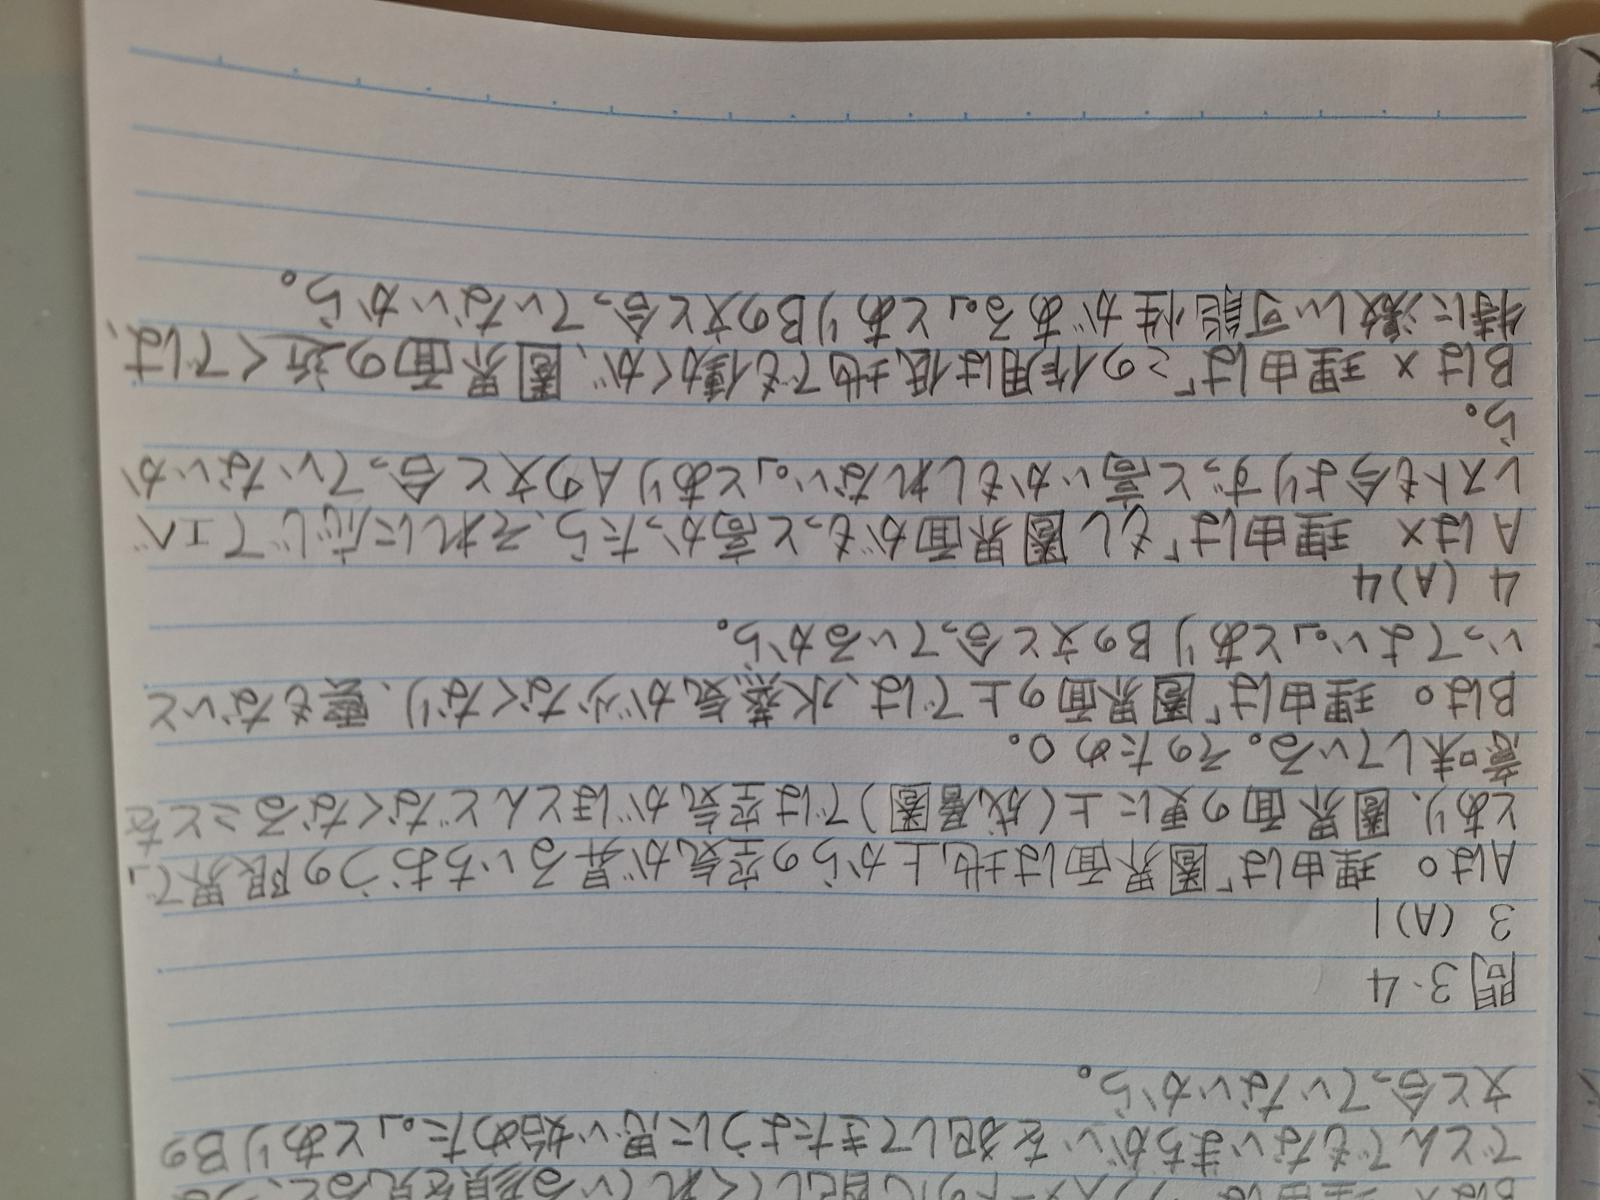 でとんでもないまちがいを犯してきたように思い始めた。」とありBの
文と合っていないから。
問3・4
3 (A)1
Aは○ 理由は「圏界面は地上からの空気が昇るいちおうの限界で」
とあり、圏界面の更に上(成層圏)では空気がほとんどなくなることを
意味している。そのため○。
Bは○ 理由は「圏界面の上では、水蒸気が少なくなり、雲もないと
いってよい。」とありBの文と合っているから。
4 (A)4
Aは× 理由は「もし圏界面がもっと高かったら、それに応じてエベ
レストも今よりずっと高いかもしれない。」とありAの文と合っていないか
ら。
Bは× 理由は「この作用は低地でも働くが、圏界面の近くでは、
特に激しい可能性がある。」とありBの文と合っていないから。